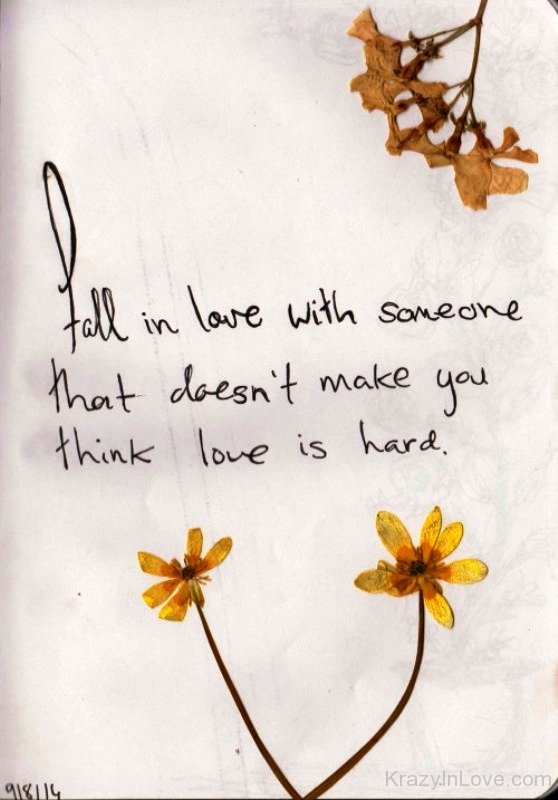 fall in love with someone
that doesn't make you
think love is hard.
9/8/14
KrazyInLove.com